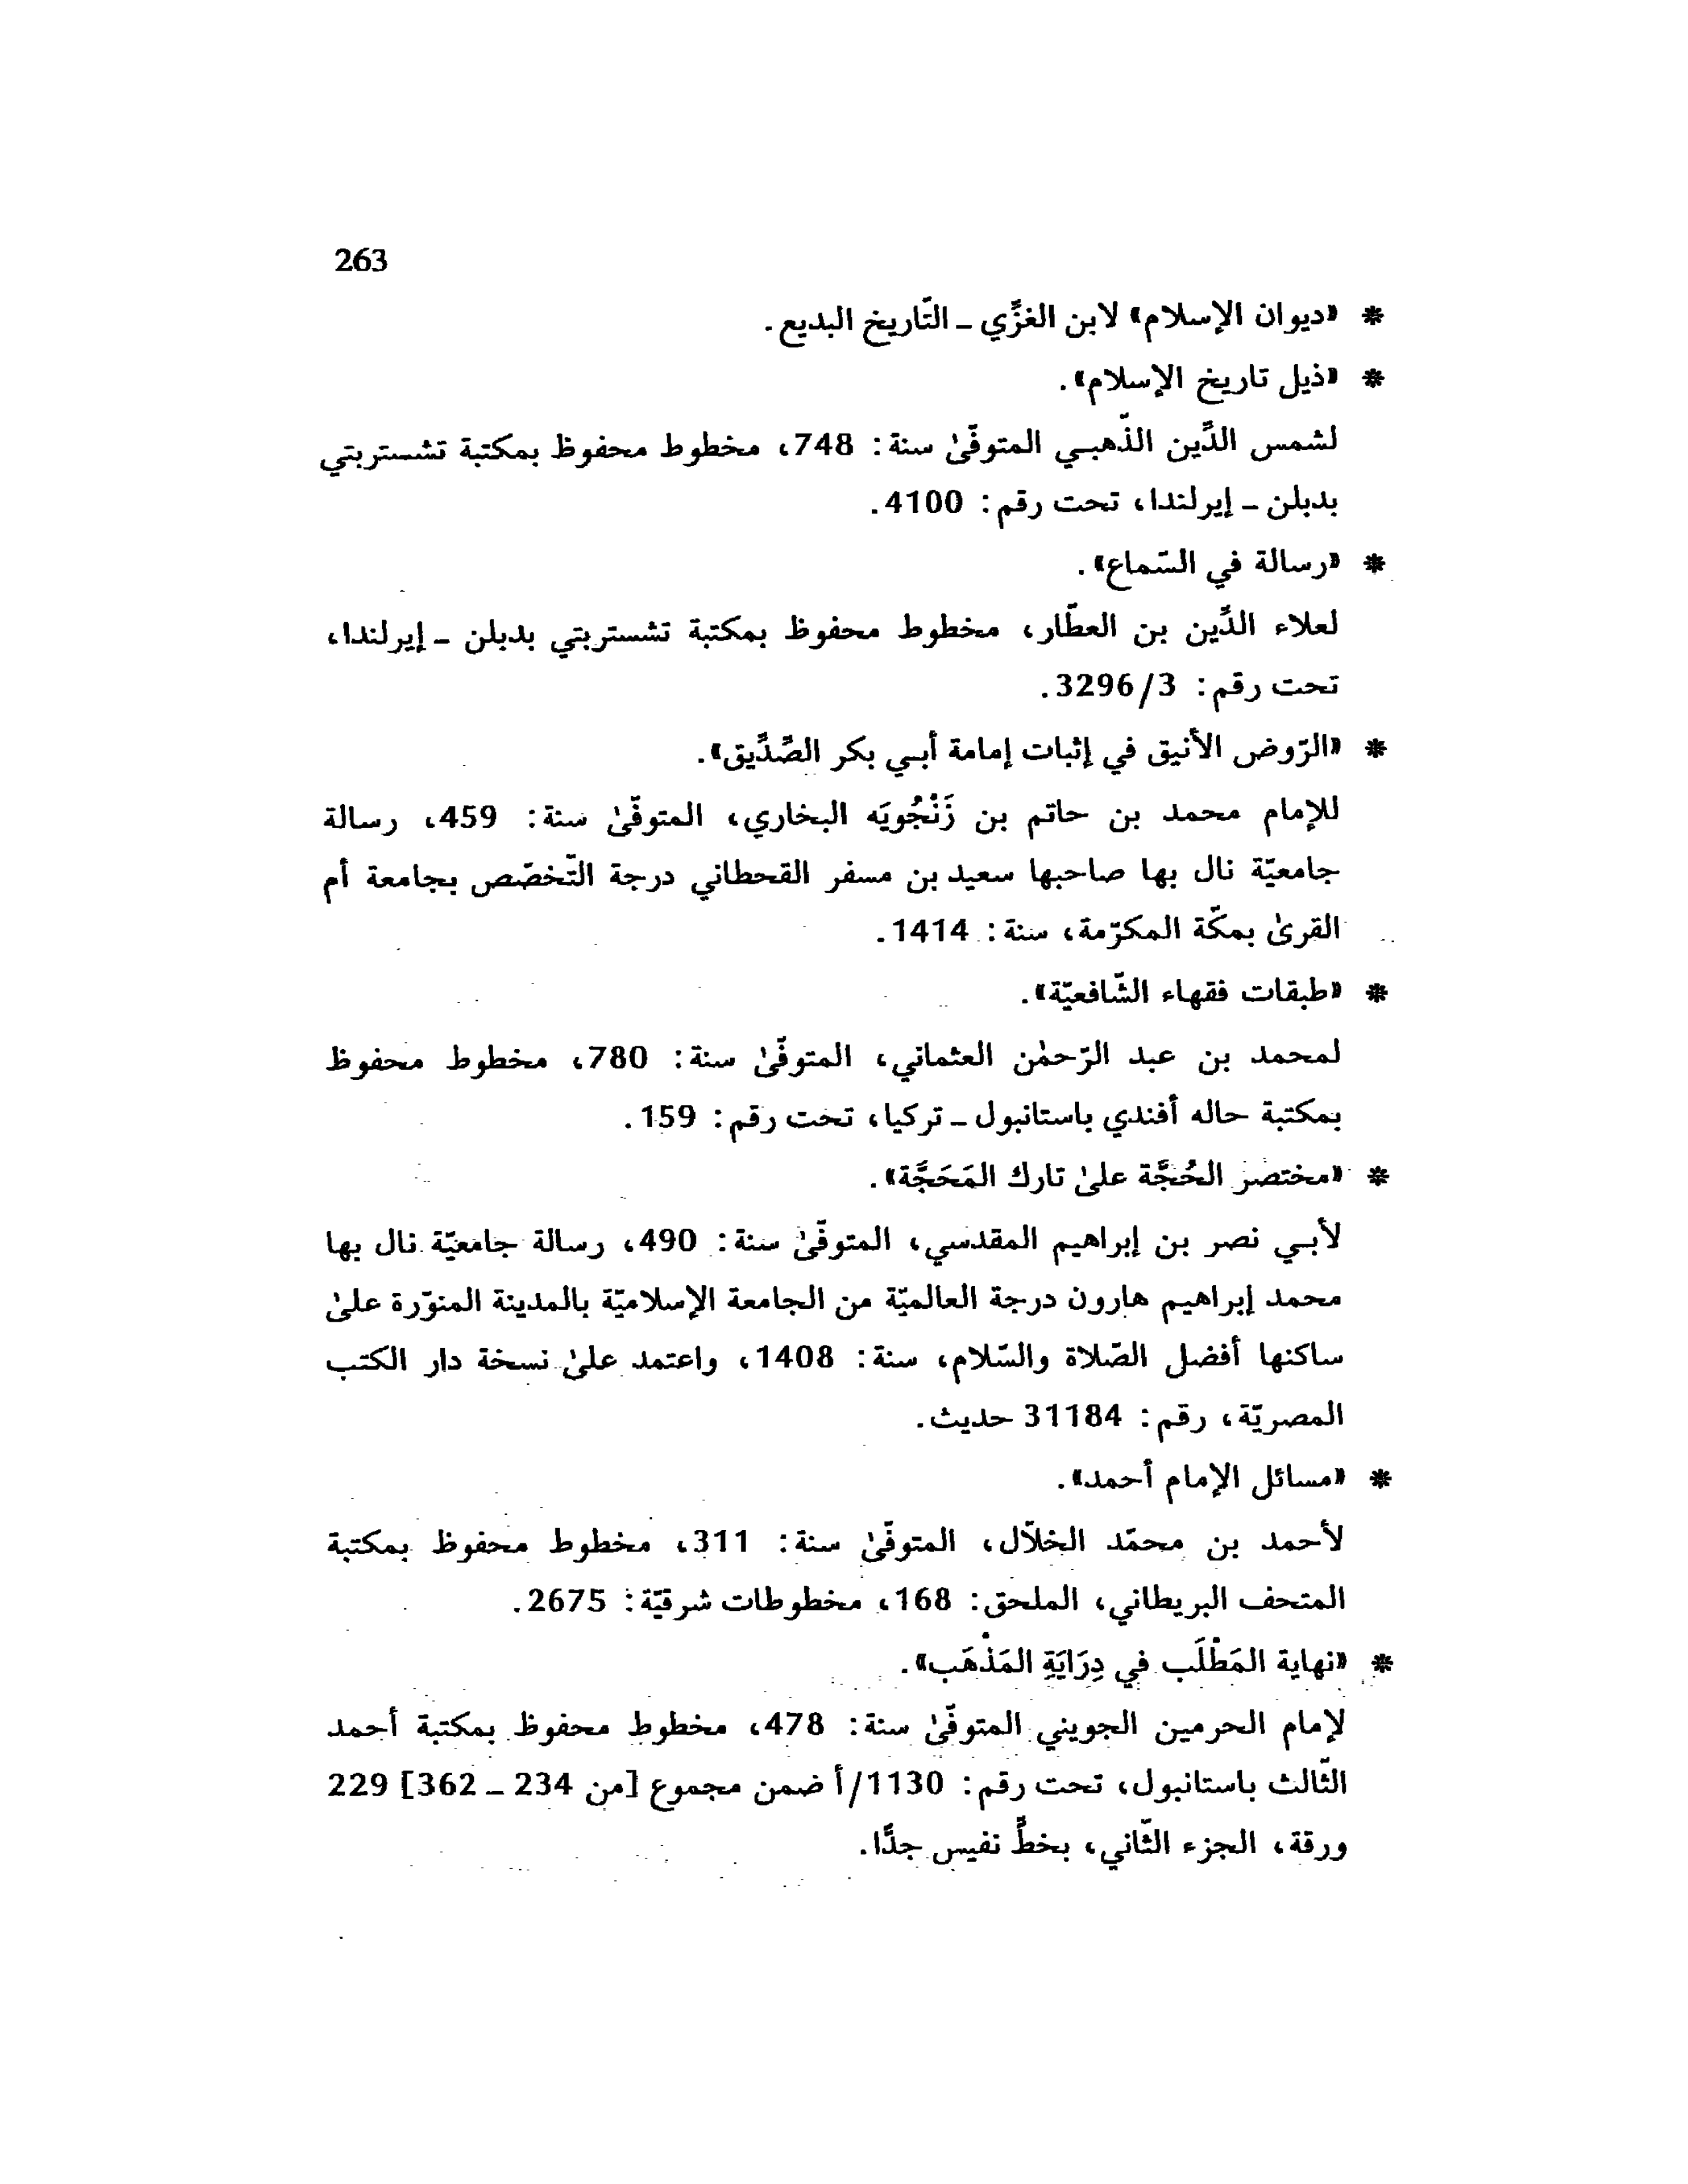 263
* «ديوان الإسلام» لابن الغزِّي ـ التّاريخ البديع.
* «ذيل تاريخ الإسلام».
لشمس الدِّين الذّهبـي المتوفّىٰ سنة: 748، مخطوط محفوظ بمكتبة تشستربتي
بدبلن ـ إيرلندا، تحت رقم: 4100.
* «رسالة في السّماع».
لعلاء الدِّين بن العطّار، مخطوط محفوظ بمكتبة تشستربتي بدبلن ـ إيرلندا،
تحت رقم: 3296/3.
* «الرّوض الأنيق في إثبات إمامة أبـي بكر الصِّدِّيق».
للإمام محمد بن حاتم بن زَنْجُويَه البخاري، المتوفّىٰ سنة: 459، رسالة
جامعيّة نال بها صاحبها سعيد بن مسفر القحطاني درجة التّخصّص بجامعة أم
القرىٰ بمكّة المكرّمة، سنة: 1414.
* «طبقات فقهاء الشّافعيّة».
لمحمد بن عبد الرّحمٰن العثماني، المتوفّىٰ سنة: 780، مخطوط محفوظ
بمكتبة حاله أفندي باستانبول ـ تركيا، تحت رقم: 159.
* «مختصر الحُجَّة علىٰ تارك المَحَجَّة».
لأبـي نصر بن إبراهيم المقدسي، المتوفّىٰ سنة: 490، رسالة جامعيّة نال بها
محمد إبراهيم هارون درجة العالميّة من الجامعة الإسلاميّة بالمدينة المنوّرة علىٰ
ساكنها أفضل الصّلاة والسّلام، سنة: 1408، واعتمد علىٰ نسخة دار الكتب
المصريّة، رقم: 31184 حديث.
* «مسائل الإمام أحمد».
لأحمد بن محمّد الخلّال، المتوفّىٰ سنة: 311، مخطوط محفوظ بمكتبة
المتحف البريطاني، الملحق: 168، مخطوطات شرقيّة: 2675.
* «نهاية المَطْلَب في دِرَايَةِ المَذْهَب».
لإمام الحرمين الجويني المتوفّىٰ سنة: 478، مخطوط محفوظ بمكتبة أحمد
الثّالث باستانبول، تحت رقم: 1130/أ ضمن مجموع [من 234 ـ 362] 229
ورقة، الجزء الثّاني، بخطٍّ نفيس جدًّا.